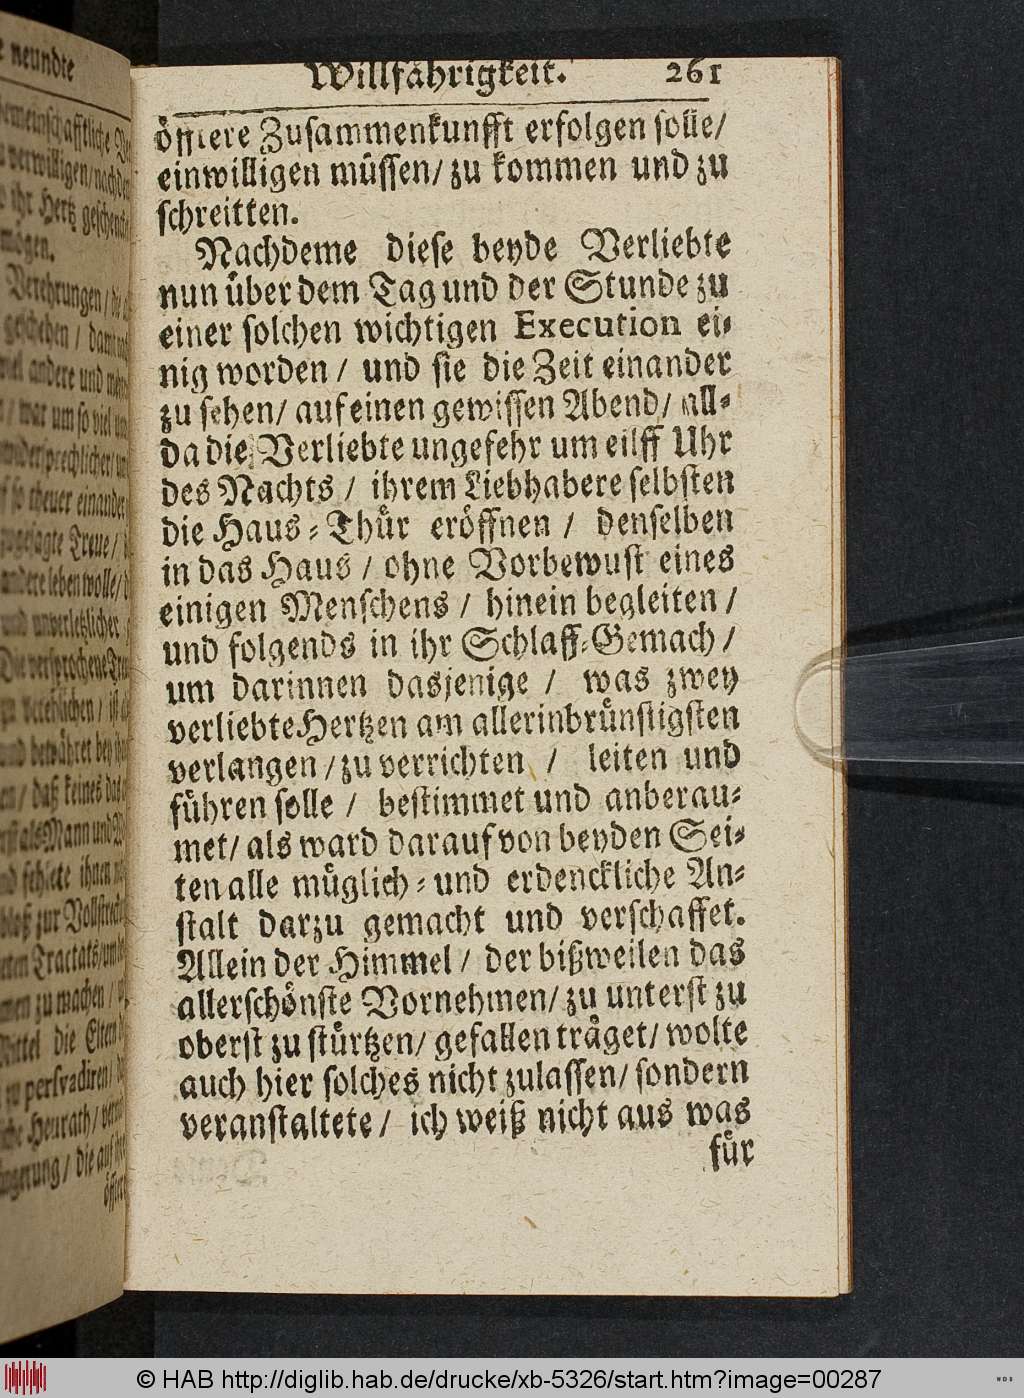 e neundte
Willfåhrigkeit. 261
öfftere Zusammenkunfft erfolgen solle/
einwilligen müssen/ zu kommen und zu
schreitten.
Nachdeme diese beyde Verliebte
nun über dem Tag und der Stunde zu
einer solchen wichtigen Execution ei-
nig worden / und sie die Zeit einander
zu sehen/ auf einen gewissen Abend/ all-
da die Verliebte ungefehr um eilff Uhr
des Nachts / ihrem Liebhabere selbsten
die Haus-Thür eröffnen / denselben
in das Haus / ohne Vorbewust eines
einigen Menschens / hinein begleiten /
und folgends in ihr Schlaff-Gemach /
um darinnen dasjenige / was zwey
verliebte Hertzen am allerinbrünstigsten
verlangen / zu verrichten / leiten und
führen solle / bestimmet und anberau-
met/ als ward darauf von beyden Sei-
ten alle müglich- und erdenckliche An-
stalt darzu gemacht und verschaffet.
Allein der Himmel / der bißweilen das
allerschönste Vornehmen/ zu unterst zu
oberst zu stürtzen/ gefallen tråget/ wolte
auch hier solches nicht zulassen/ sondern
veranstaltete / ich weiß nicht aus was
für
© HAB http://diglib.hab.de/drucke/xb-5326/start.htm?image=00287